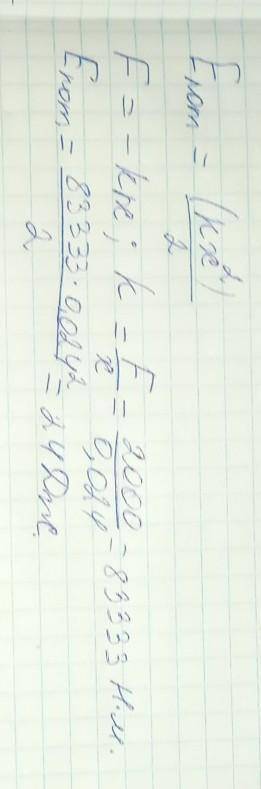 Eпот = (kx²)/2
F = -kx; k = F/x = 2000/0,024 = 83333 Н.м.
Eпот. = 83333·0,024²/2 = 24Дж.